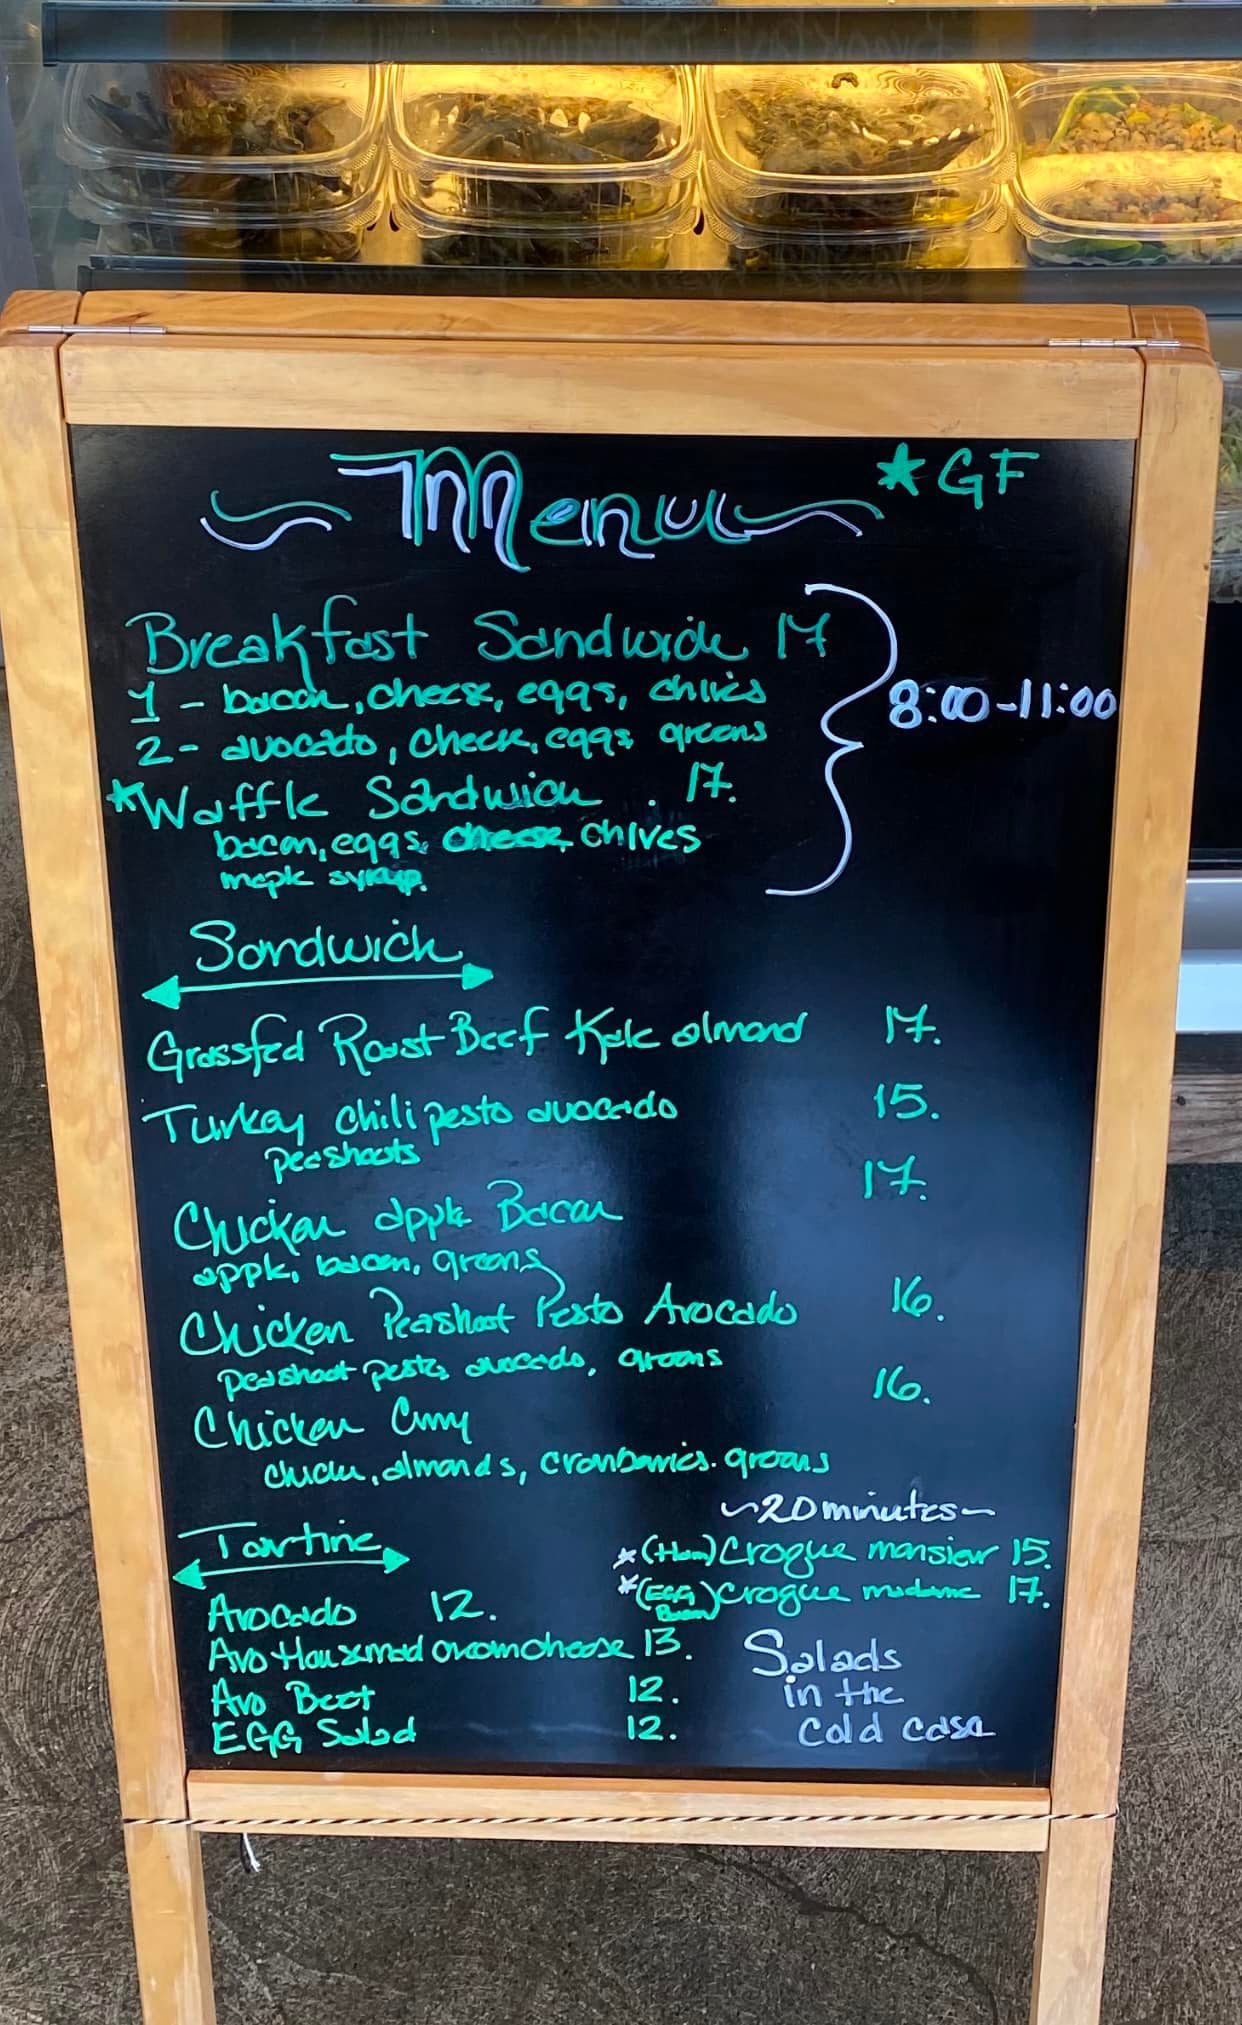 Menu
★ GF
Breakfast Sandwich 17
1 - bacon, cheese, eggs, chives
2 - avocado, cheese, eggs greens
8:00-11:00
★Waffle Sandwich . 17.
bacon, eggs, cheese, chives
maple syrup.
Sandwich
Grassfed Roast Beef Kale almond 17.
Turkey chili pesto avocado 15.
peashoots
Chicken apple Bacon 17.
apple, bacon, greens
Chicken Peashoot Pesto Avocado 16.
peashoot pesto, avocado, greens
Chicken Curry 16.
chicken, almonds, cranberries. greens
~20 minutes~
Tartine
★(Ham) Crogue monsieur 15.
★(EGG Bacon) Crogue madame 17.
Avocado 12.
Avo Housemad creamcheese 13.
Avo Beet 12.
EGG Salad 12.
Salads
in the
cold case